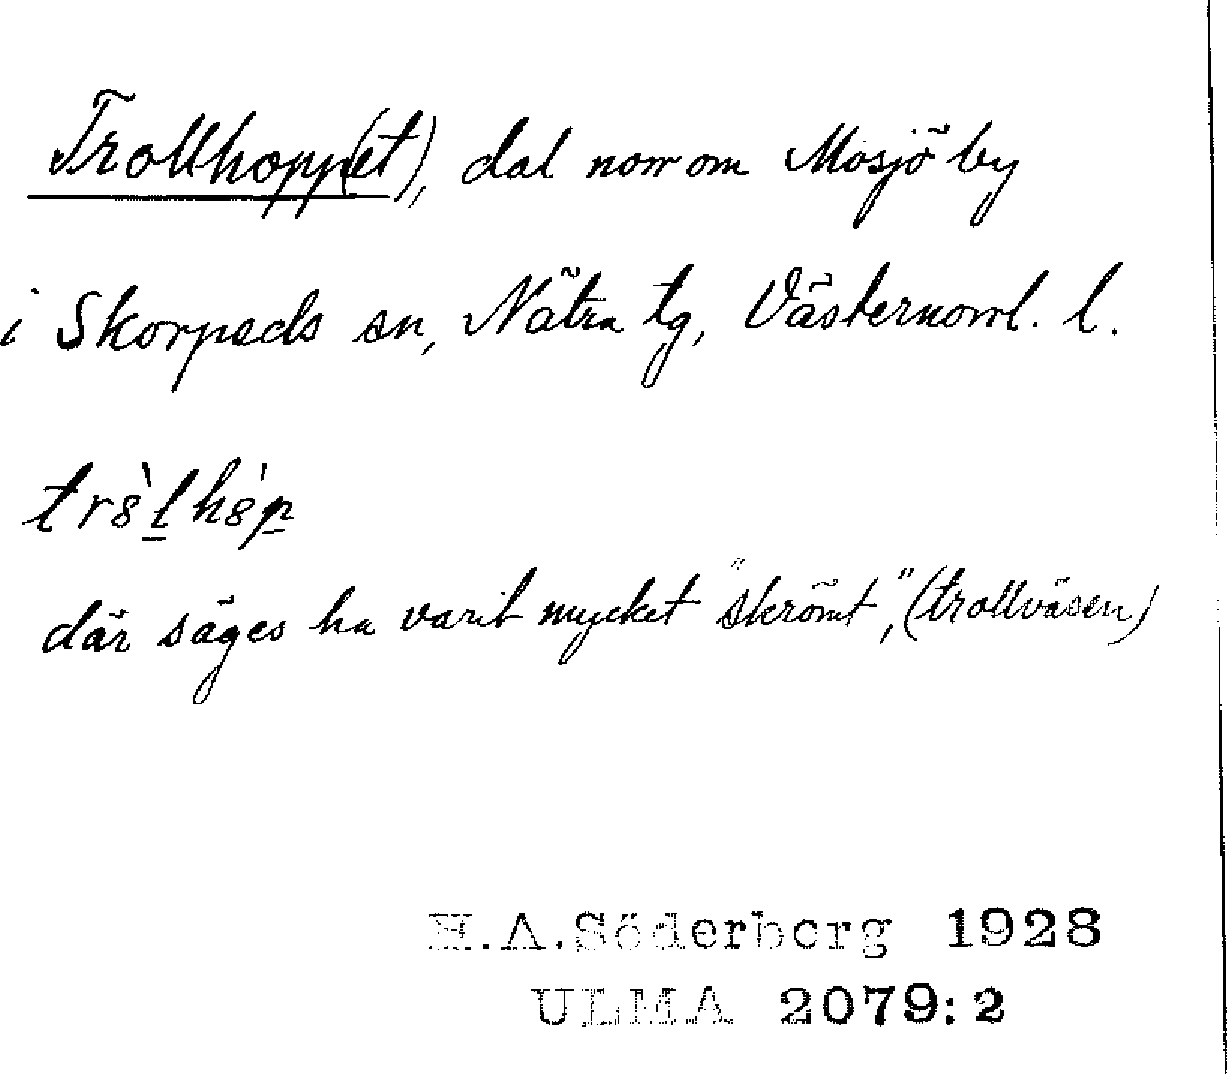 Trollhopp(et), dal norr om Mosjö by
i Skorpeds sn, Nätra tg, Västernorrl. l.
tr8̀l̲h8́p̲
där säges ha varit mycket "skrömt", (trollväsen)
H.A.Söderberg 1928
ULMA 2079:2